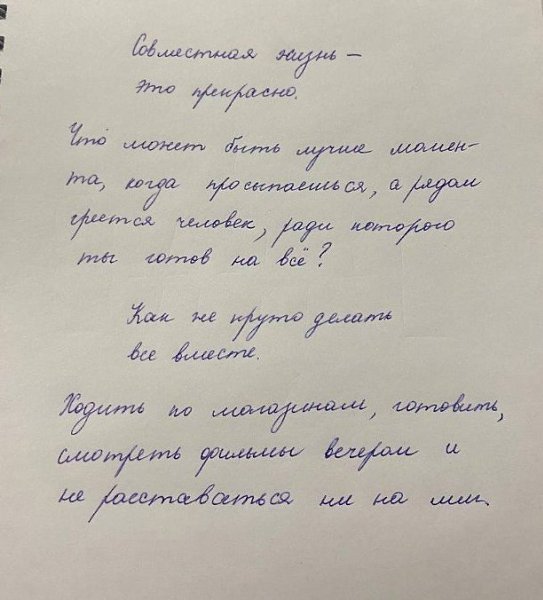 Совместная жизнь –
это прекрасно.
Что может быть лучше момен-
та, когда просыпаешься, а рядом
греется человек, ради которого
ты готов на всё?
Как же круто делать
все вместе.
Ходить по магазинам, готовить,
смотреть фильмы вечером и
не расставаться ни на миг.